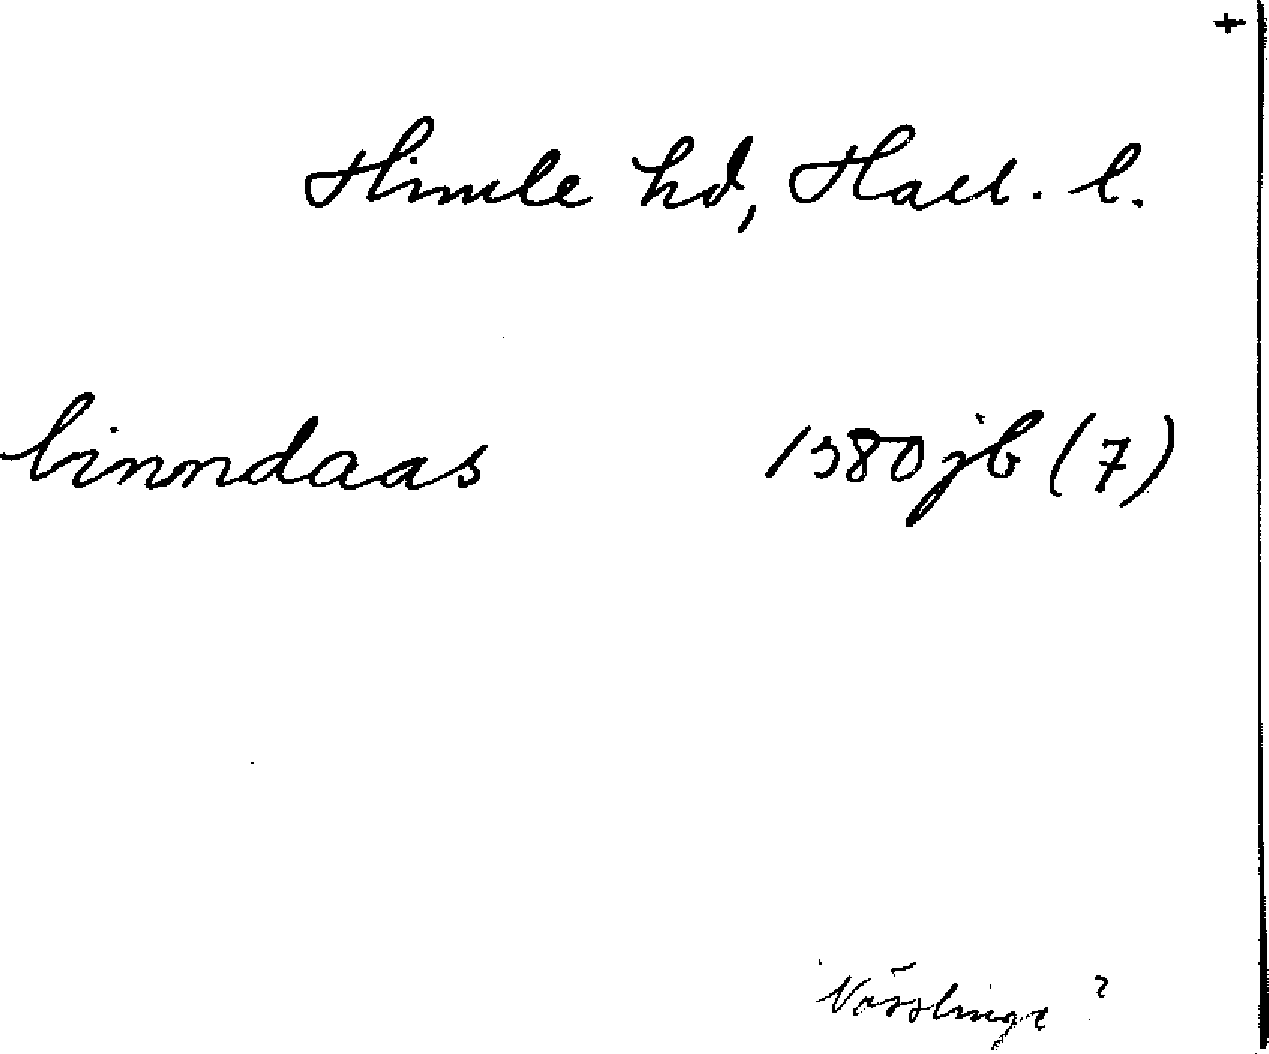 +
Himle hd, Hall. l.
linndaas 1380 jb (7)
Värslinge ?